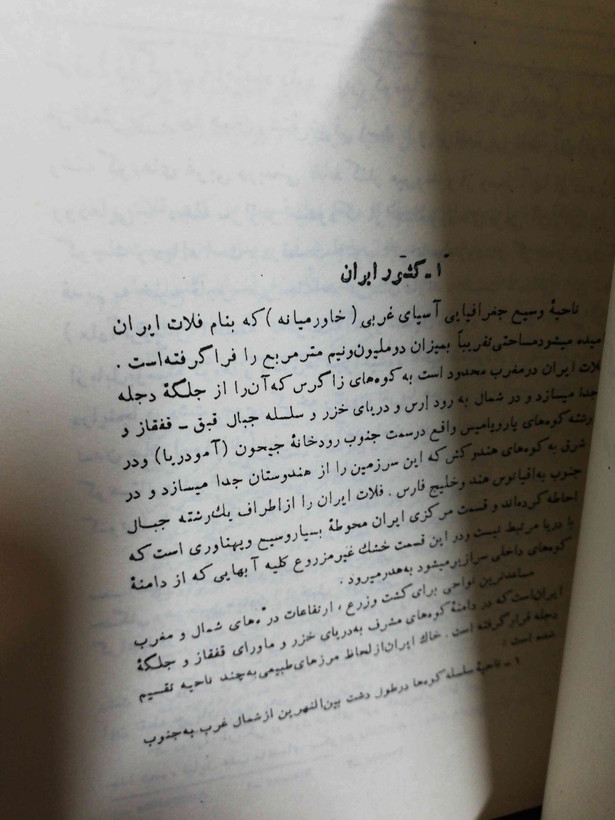 ۱ـ کشور ایران
ناحیهٔ وسیع جغرافیایی آسیای غربی ( خاورمیانه ) که بنام فلات ایران
میده میشود مساحتی تقریباً بمیزان دو ملیون و نیم متر مربع را فرا گرفته است .
لات ایران در مغرب محدود است به کوه‌های زاگرس که آن را از جلگهٔ دجله
جدا میسازد و در شمال به رود ارس و دریای خزر و سلسله جبال قبق ـ قفقاز و
رشته کوه‌های پاروپامیس واقع درسمت جنوب رودخانهٔ جیحون (آمودریا) ودر
شرق به کوه‌های هندوکش که این سرزمین را از هندوستان جدا میسازد و در
جنوب به اقیانوس هند وخلیج فارس . فلات ایران را از اطراف یك رشته جبال
احاطه کرده‌اند و قسمت مرکزی ایران محوطهٔ بسیار وسیع و پهناوری است که
با دریا مرتبط نیست ودر این قسمت خشك غیر مزروع کلیه آبهایی که از دامنهٔ
کوه‌های داخلی سرازیر میشود به هدر میرود .
مساعدترین نواحی برای کشت وزرع ، ارتفاعات دره‌های شمال و مغرب
ایران است که در دامنهٔ کوه‌های مشرف به دریای خزر و ماورای قفقاز و جلگهٔ
دجله قرار گرفته است . خاك ایران از لحاظ مرزهای طبیعی به چند ناحیه تقسیم
شده است :
۱ ـ ناحیهٔ سلسله کوه‌ها درطول دشت بین‌النهرین از شمال غرب به جنوب